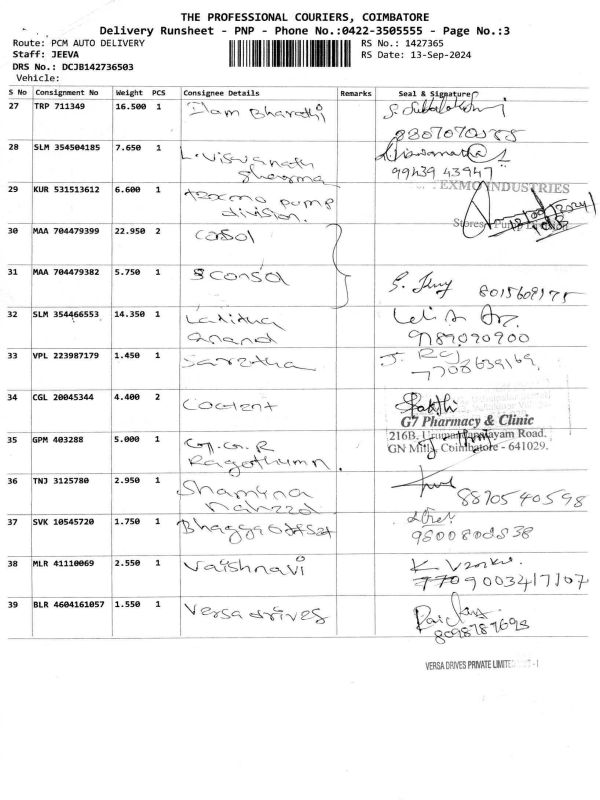 THE PROFESSIONAL COURIERS, COIMBATORE
Delivery Runsheet - PNP - Phone No.:0422-3505555 - Page No.:3
Route: PCM AUTO DELIVERY RS No.: 1427365
Staff: JEEVA RS Date: 13-Sep-2024
DRS No.: DCJB142736503
Vehicle:
S No Consignment No Weight PCS Consignee Details Remarks Seal & Signature
27 TRP 711349 16.500 1 Ilam Bharathi
28 SLM 354504185 7.650 1 L. Viswanath Sharma
99439 43947
29 KUR 531513612 6.600 1 texmo pump division.
EXMO INDUSTRIES
30 MAA 704479399 22.950 2 Consol
31 MAA 704479382 5.750 1 Consol
8015609175
32 SLM 354466553 14.350 1 Lalitha Anand
9789090900
33 VPL 223987179 1.450 1 Saretha
7708639169
34 CGL 20045344 4.400 2 Cocient
Sakthi
G7 Pharmacy & Clinic
216B, Road,
GN Mills, Coimbatore - 641029.
35 GPM 403288 5.000 1
36 TNJ 3125780 2.950 1
8870540598
37 SVK 10545720 1.750 1
38 MLR 41110069 2.550 1 Vaishnavi
9003417107
39 BLR 4604161057 1.550 1 Versa drives
8098787693
VERSA DRIVES PRIVATE LIMITED